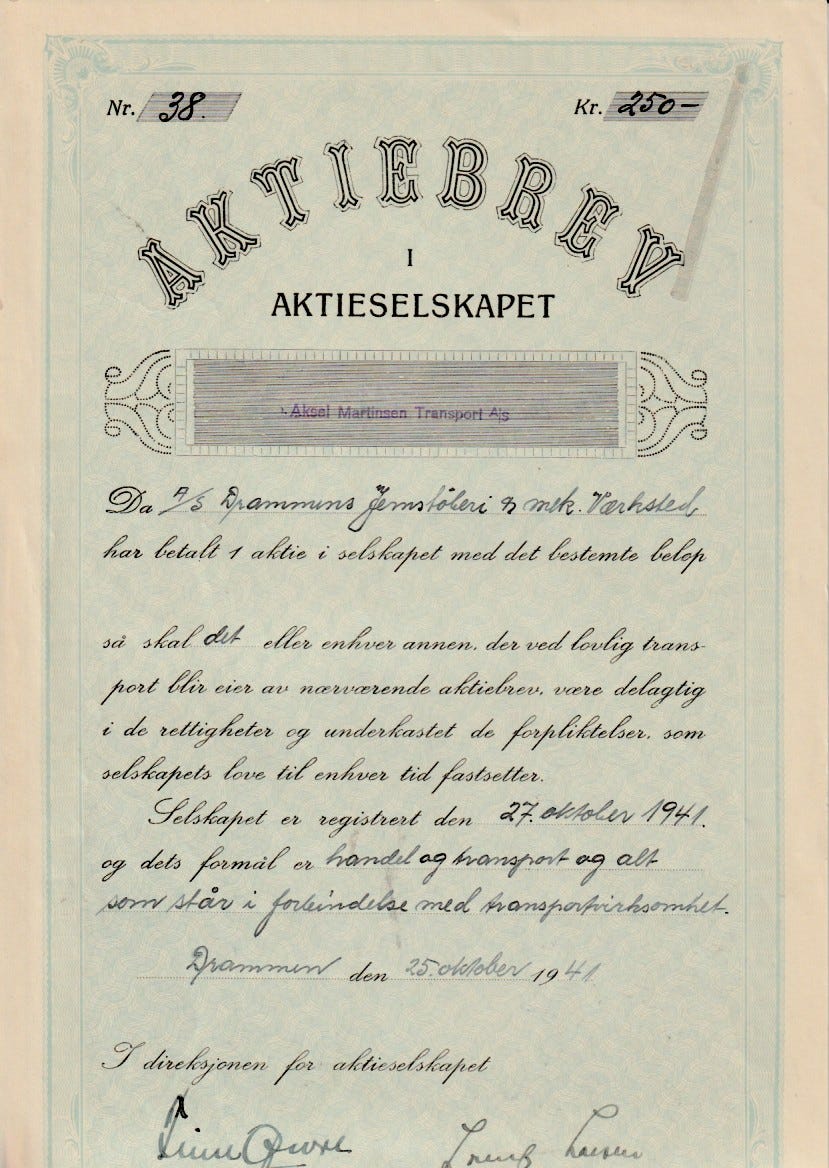 Nr. 38. Kr. 250—
AKTIEBREV
I
AKTIESELSKAPET
Aksel Martinsen Transport A/s
Da A/S Drammens Jernstöberi & mek. Værksted
har betalt 1 aktie i selskapet med det bestemte beløp
så skal det eller enhver annen, der ved lovlig trans-
port blir eier av nærværende aktiebrev, være delagtig
i de rettigheter og underkastet de forpliktelser, som
selskapets love til enhver tid fastsetter.
Selskapet er registrert den 27. oktober 1941.
og dets formål er handel og transport og alt
som står i forbindelse med transportvirksomhet.
Drammen den 25. oktober 1941
I direksjonen for aktieselskapet
Larsen